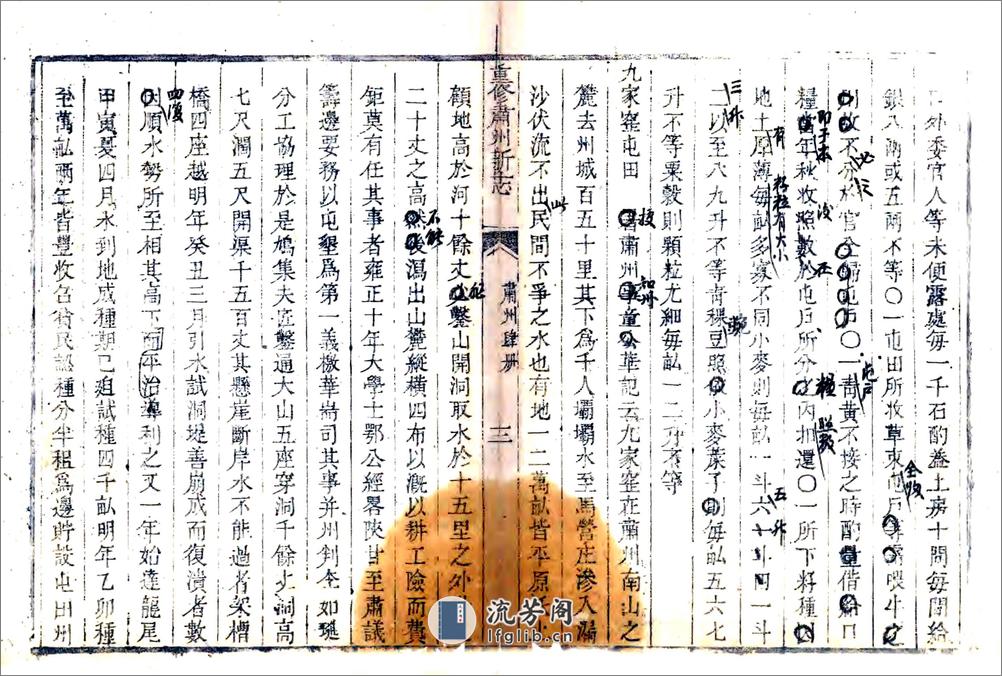 外委官人等未便露處每一千石酌葢土房十間每間給
銀八兩或五兩不等〇一屯田所收草束
收不分於官全歸屯戶〇一靑黃不接之時酌量借給口
糧當年秋收照數於屯戶所分之內扣還〇一所下籽種
地土厚薄每畝多寡不同小麥則每畝一斗六
二以至八九升不等青稞豆照小麥葉子則每畝五六七
升不等粟穀則顆粒尤細每畝一二升不等
九家窑屯田 舊肅州童華記云九家窑在肅州南山之
麓去州城百五十里其下爲千人壩壩水至馬營庄滲入漏
沙伏流不出民間不爭之水也有地一二萬畝皆平原
顧地高於河十餘丈必鑿山開洞取水於十五里之外
二十丈之高然後瀉出山麓縱橫四布以溉以耕工險而費
鉅莫有任其事者雍正十年大學士鄂公經畧陝甘至肅議
籌邊要務以屯墾爲第一義檄華耑司其事并州判李如璡
分工協理於是鳩集夫匠鑿通大山五座穿洞千餘丈洞高
七尺濶五尺開渠千五百丈其懸崖斷岸水不能過者架槽
橋四座越明年癸丑三月引水試洞堤善崩成而復潰者數
四復
順水勢所至相其高下而平治導利之又一年始達龍尾
甲寅夏四月水到地成種期已廹試種四千畝明年乙卯種
至萬畝兩年皆豐收召
民認種分半租爲邊貯設屯田州
重修肅州新志
肅州肆册
三